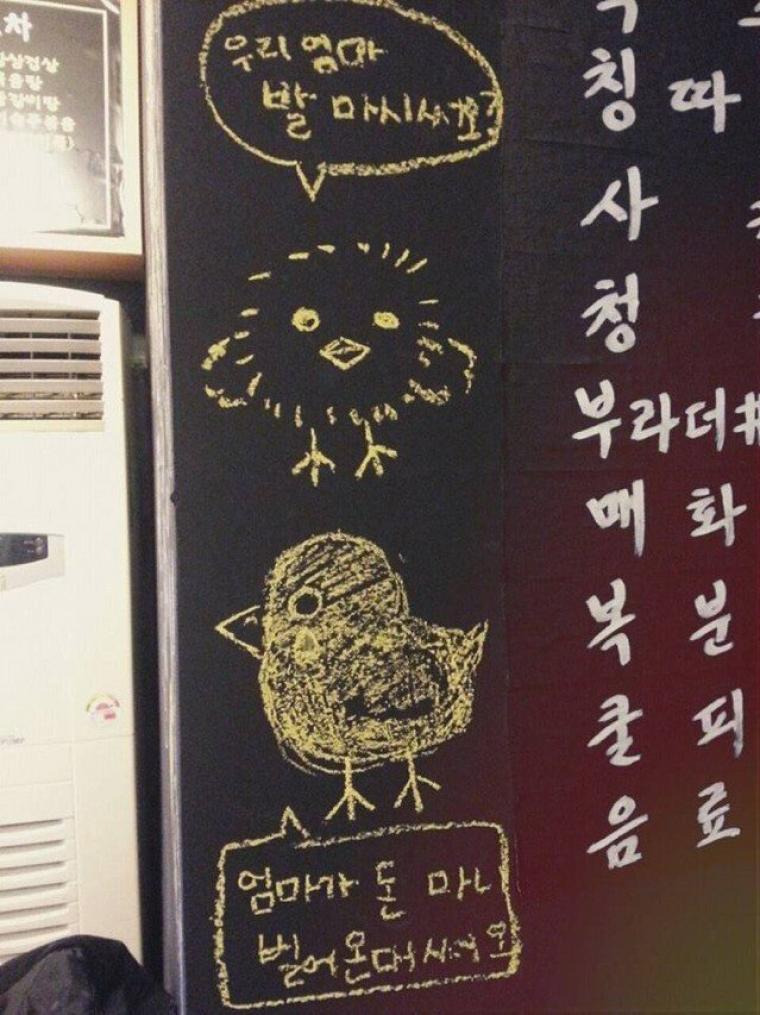 우리 엄마
발 마시써요?
엄마가 돈 마니
벌어온대써요
칭 따
사
청
부라더#
매 화
복 분
쿨 피
음 료